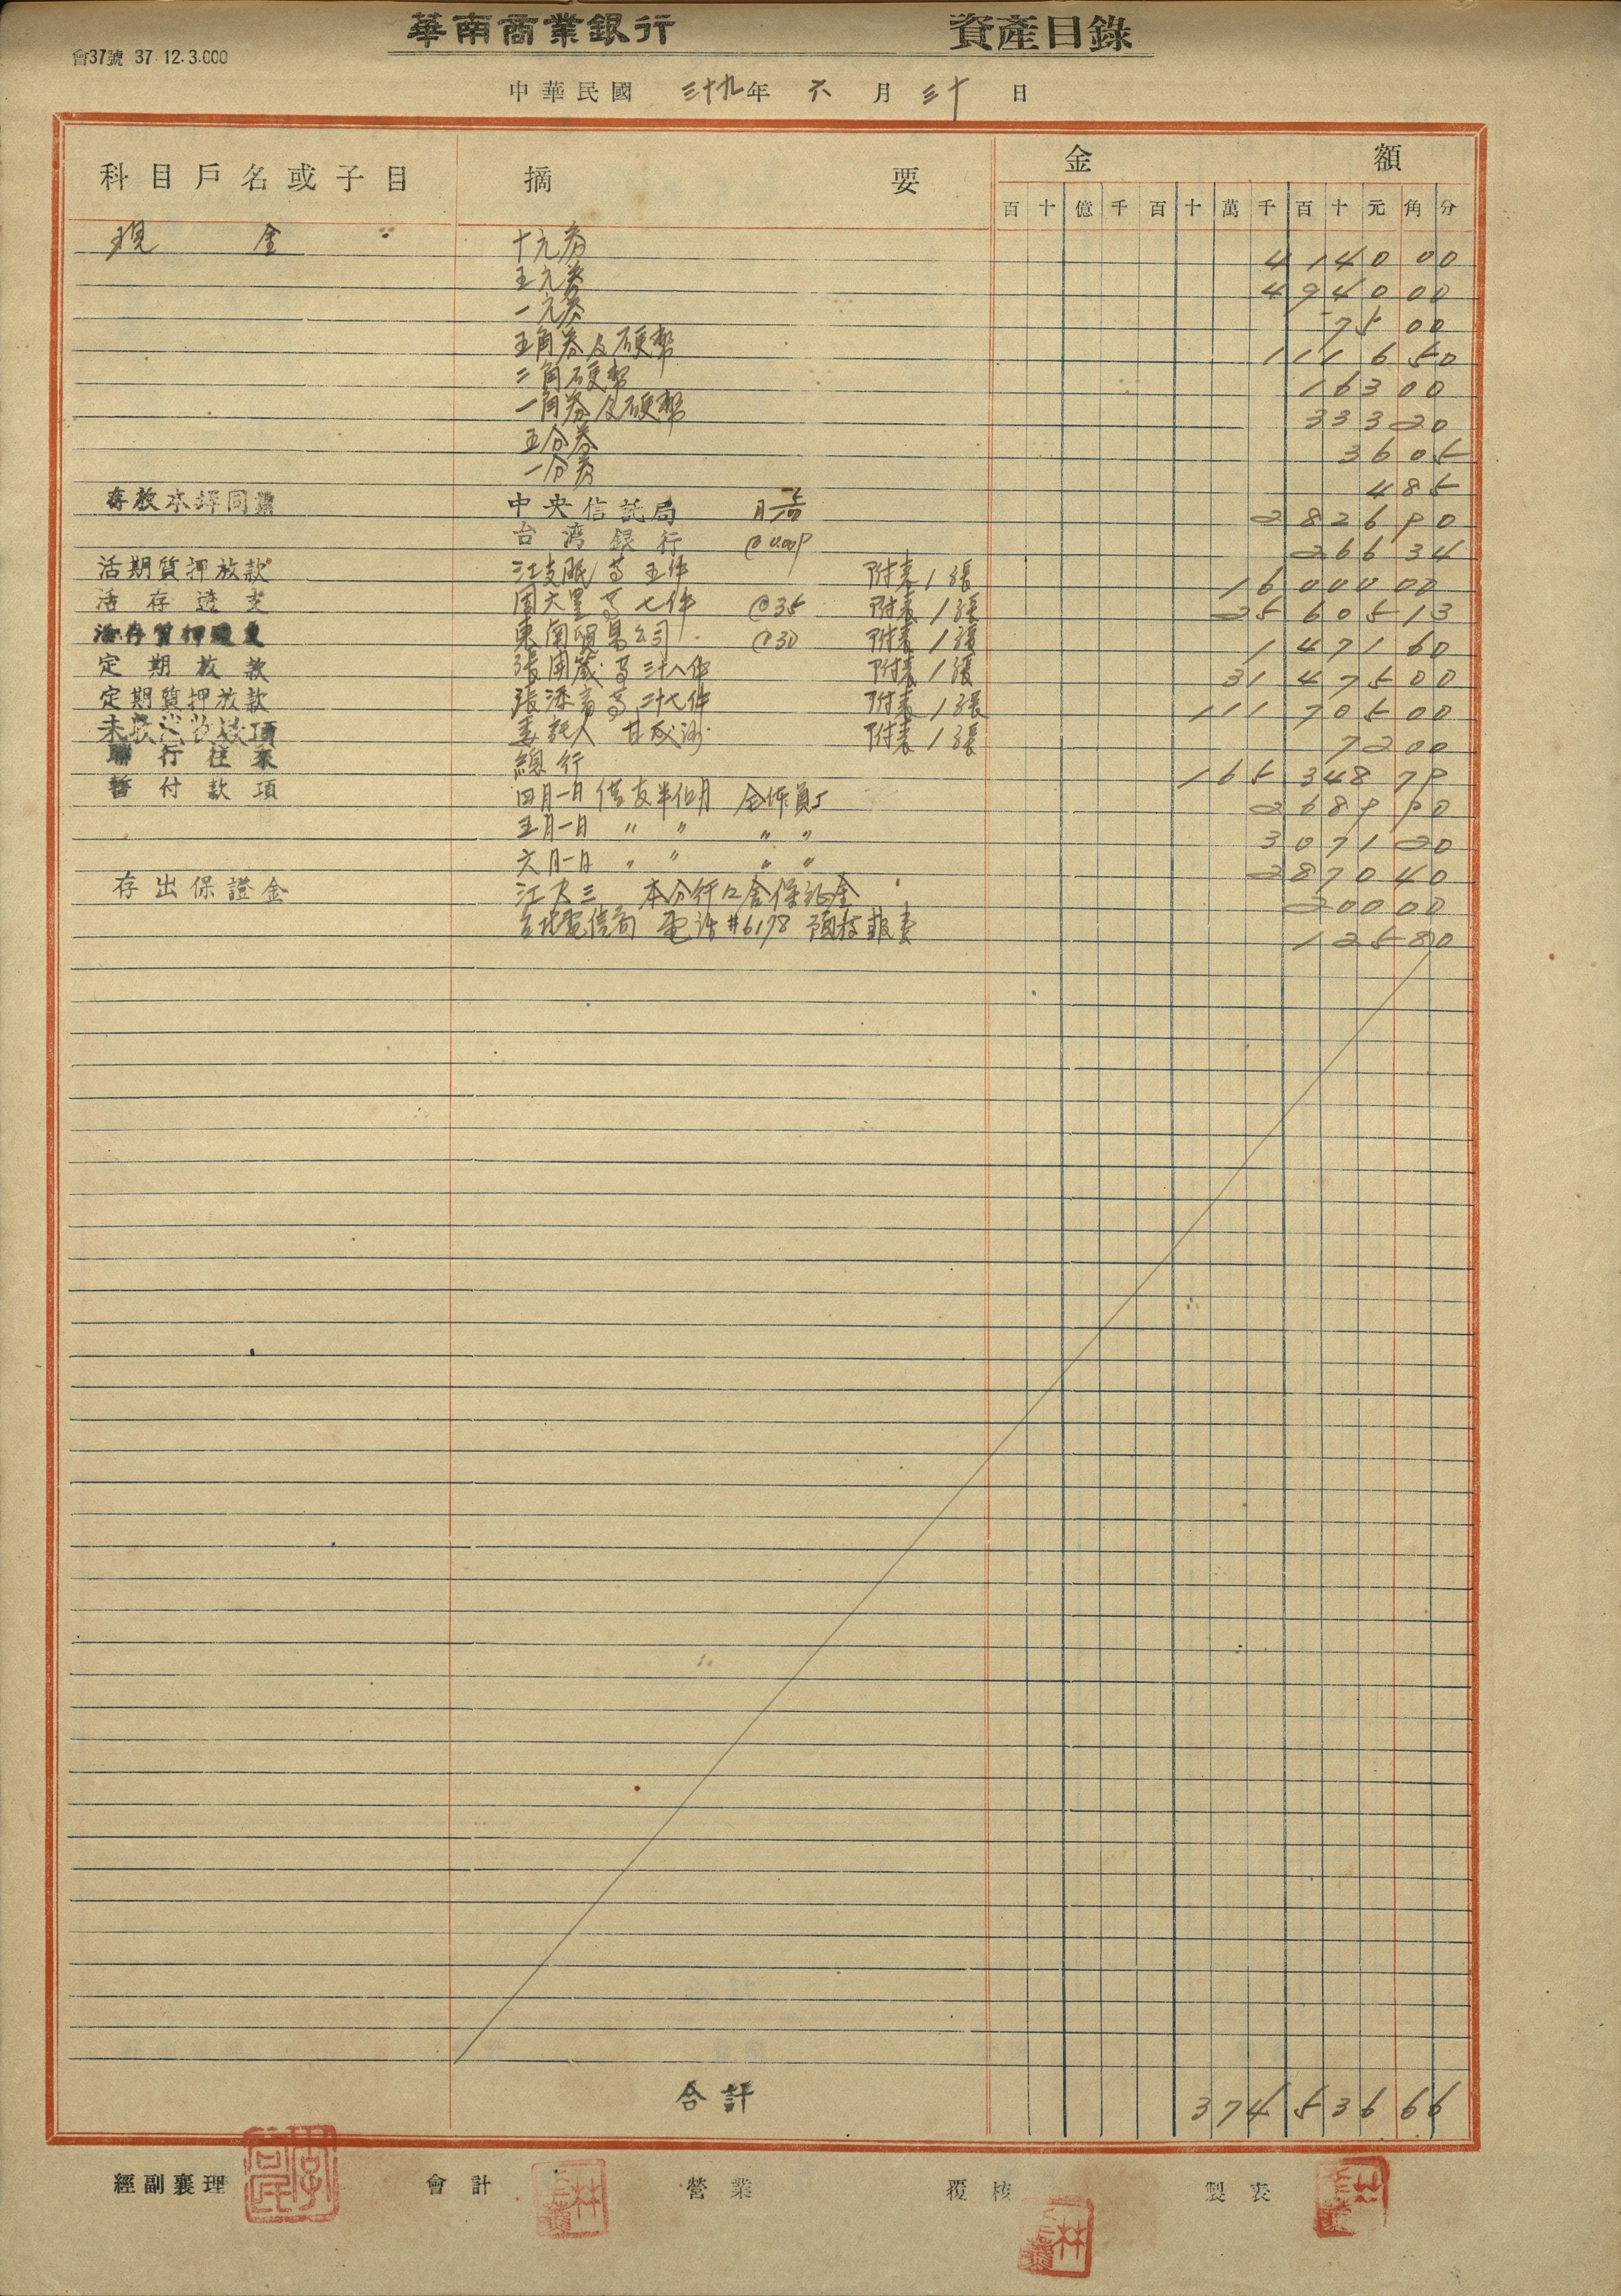 華南商業銀行 資產目錄
會37號 37.12.3.000
中華民國 三十九年 六 月 三十 日
科目戶名或子目 摘 要 金 額
百 十 億 千 百 十 萬 千 百 十 元 角 分
現 金 十元券 4 140 00
五元券 4 940 00
一元券 75 00
五角券及硬幣 1 116 50
二角硬幣 163 00
一角券及硬幣 333 20
五分券 36 05
一分券 4 85
存放本埠同業 中央信託局 2 826 90
台灣銀行 266 34
活期質押放款 等五件 附表1張 16 000 00
活存透支 周大里等七件 @35 附表1張 25 605 13
活存質押透支 東南貿易公司 @30 附表1張 1 471 60
定期放款 等三十八件 附表1張 31 475 00
定期質押放款 等二十七件 附表1張 111 705 00
未收 款項 委託人 附表1張 72 00
聯行往來 總行 165 348 79
暫付款項 四月一日 借支半個月 全体員工 2 689 90
五月一日 〃 〃 〃 〃 3 071 20
六月一日 〃 〃 〃 〃 2 870 40
存出保證金 江大三 本分行 舍保証金 200 00
台北電信局 電話#6178 報費 125 80
合計 374 536 66
經副襄理 會計 營業 覆核 製表